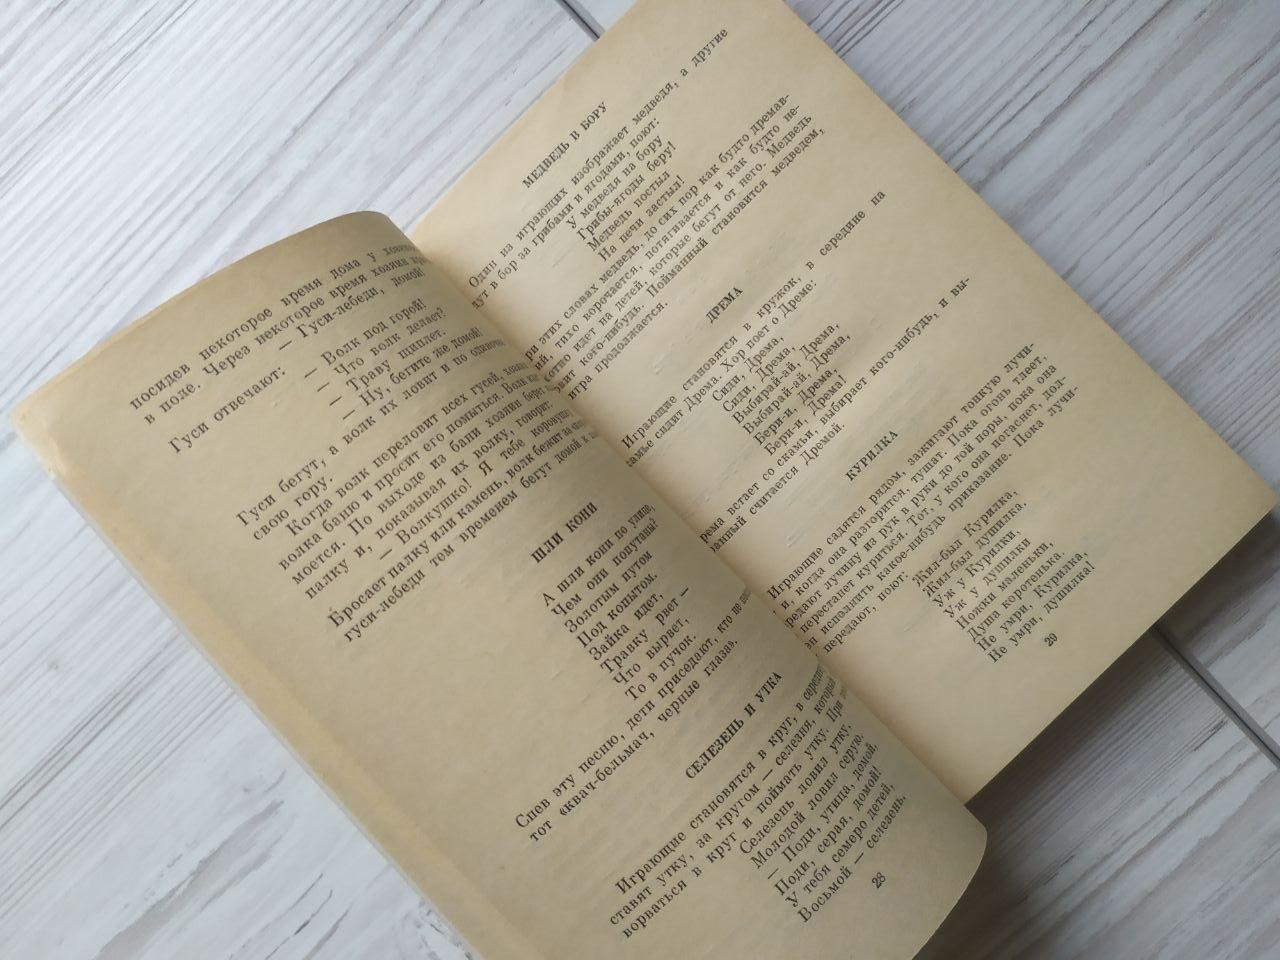 посидев некоторое время дома у
в поле. Через некоторое время хозяин
— Гуси-лебеди, домой!
Гуси отвечают:
— Волк под горой!
— Что волк делает?
— Траву щиплет.
— Ну, бегите же домой!
Гуси бегут, а волк их ловит и по одиноч
свою гору.
Когда волк переловит всех гусей,
волка баню и просит его помыться. Волк
моется. По выходе из бани хозяин берет
палку и, показывая их волку, говорит:
— Волкушко! Я тебе коровушку
Бросает палку или камень, волк бежит за
гуси-лебеди тем временем бегут домой к
ШЛИ КОНИ
А шли кони по улице,
Чем они попутаны?
Золотым путом
Под копытом.
Зайка идет,
Травку рвет —
Что вырвет,
То в пучок.
Спев эту песню, дети приседают, кто не
тот «квач-бельмач, черные глаза».
СЕЛЕЗЕНЬ И УТКА
Играющие становятся в круг, в середине
ставят утку, за кругом — селезня, который
ворваться в круг и поймать утку. При
Селезень ловил утку,
Молодой ловил серую.
— Поди, утица, домой,
Поди, серая, домой!
У тебя семеро детей,
Восьмой — селезень.
28
МЕДВЕДЬ В БОРУ
Один из играющих изображает медведя, а другие
дут в бор за грибами и ягодами, поют:
У медведя на бору
Грибы-ягоды беру!
Медведь постыл
На печи застыл!
ри этих словах медведь, до сих пор как будто дремав-
ий, тихо ворочается, потягивается и как будто не-
хотно идет на детей, которые бегут от него. Медведь
овит кого-нибудь. Пойманный становится медведем,
игра продолжается.
ДРЕМА
Играющие становятся в кружок, в середине на
скамье сидит Дрема. Хор поет о Дреме:
Сиди, Дрема,
Сиди, Дрема,
Выбирай-ай, Дрема,
Выбирай-ай, Дрема,
Бери-и, Дрема,
Бери-и, Дрема!
рема встает со скамьи, выбирает кого-нибудь, и вы-
ранный считается Дремой.
КУРИЛКА
Играющие садятся рядом, зажигают тонкую лучи-
и, когда она разгорится, тушат. Пока огонь тлеет,
редают лучину из рук в руки до той поры, пока она
перестанет куриться. Тот, у кого она погаснет, дол-
ен исполнить какое-нибудь приказание. Пока лучи-
передают, поют:
Жил-был Курилка,
Жил-был душилка.
Уж у Курилки,
Уж у душилки
Ножки маленьки,
Душа коротенька.
Не умри, Курилка,
Не умри, душилка!
29